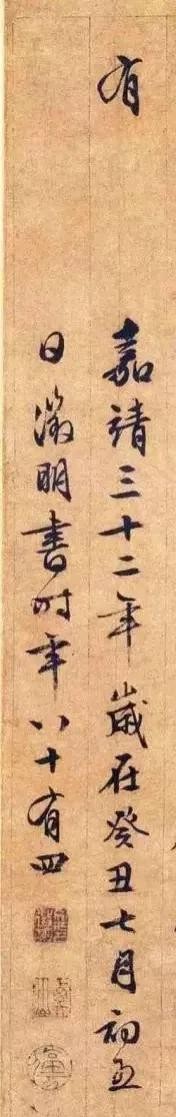 有
嘉靖三十二年歲在癸丑七月初五
日徵明書時年八十有四